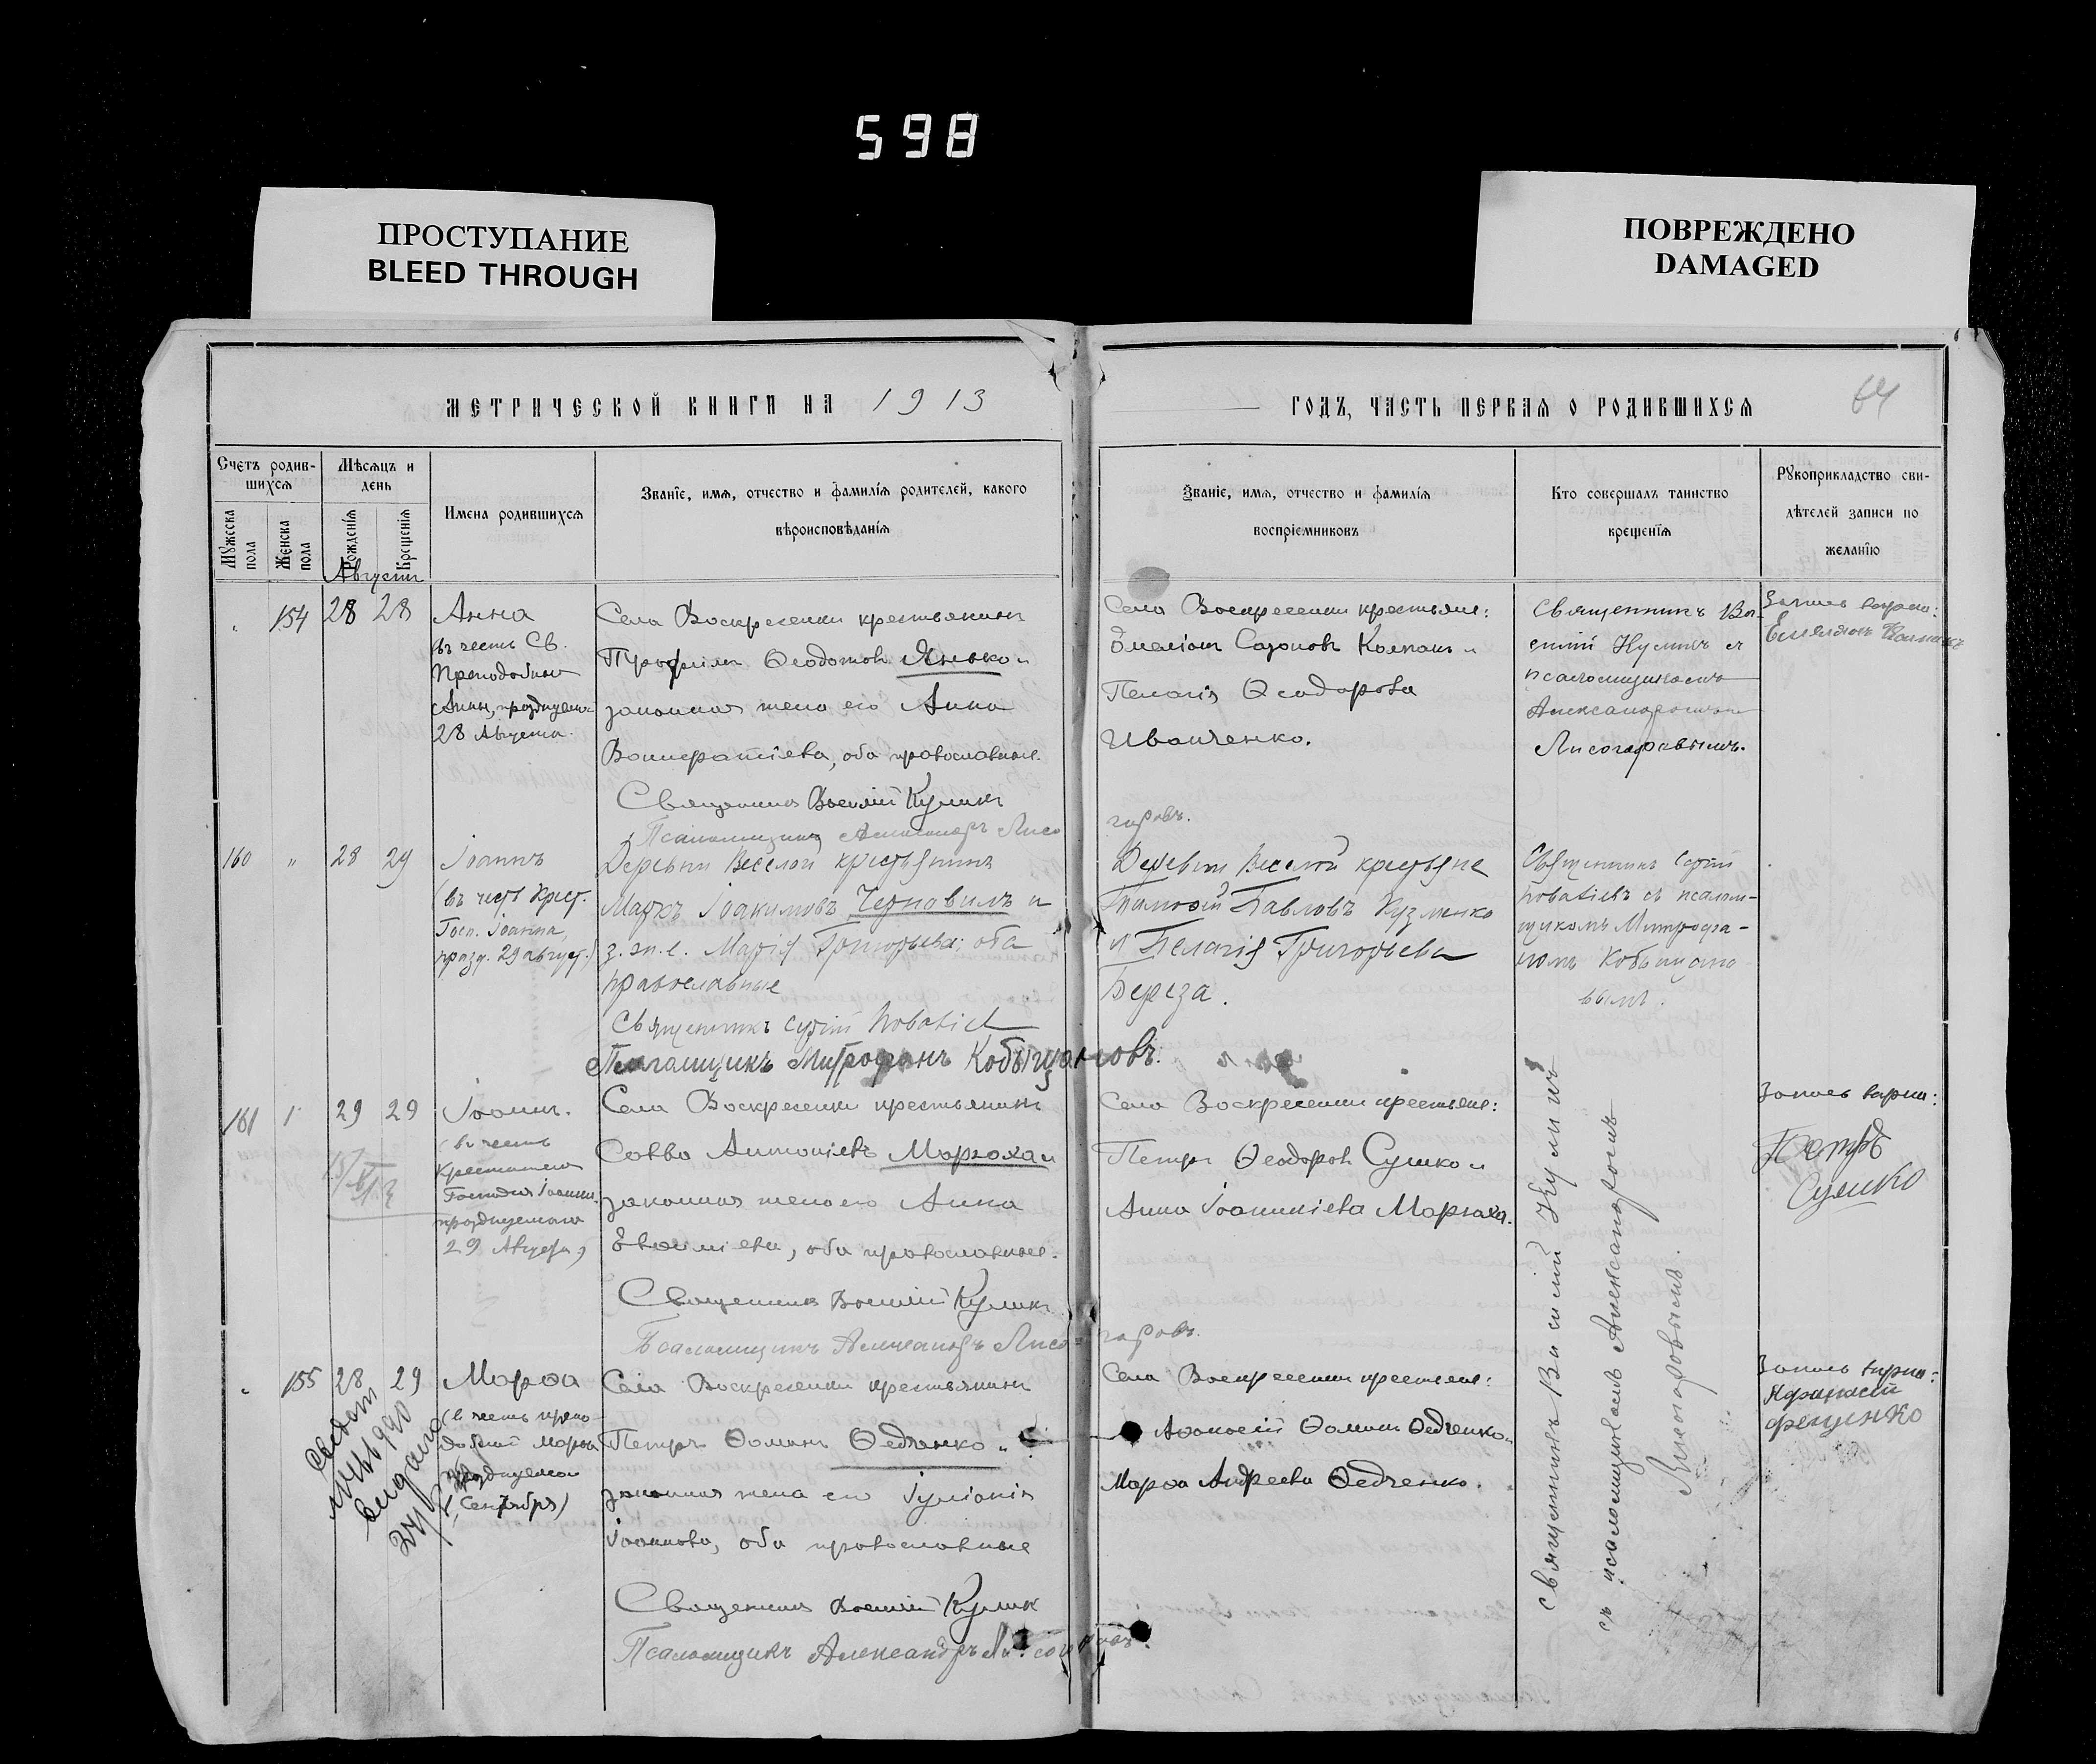 598
ПРОСТУПАНИЕ
BLEED THROUGH
ПОВРЕЖДЕНО
DAMAGED
МЕТРИЧЕСКОЙ КНИГИ НА 1913
ГОДЪ, ЧАСТЬ ПЕРВАЯ О РОДИВШИХСЯ
64
Счетъ родив-
шихся
Мужеска
пола
Женска
пола
Мѣсяцъ и
день
Рожденія
Крещенія
Имена родившихся
Званіе, имя, отчество и фамилія родителей, какого
вѣроисповѣданія
Званіе, имя, отчество и фамилія
воспріемниковъ
Кто совершалъ таинство
крещенія
Рукоприкладство сви-
дѣтелей записи по
желанію
Августъ
154 28 28
Анна
въ честь Св.
Преподобныя
Анны, празднуема
28 Августа.
Села Воскресенки крестьянинъ
Ѳеодотовъ Янько и
законная жена его Анна
оба православные.
Священникъ Василій Куликъ
Псаломщикъ Александръ Лисо
гаровъ.
Села Воскресенки крестьяне:
Емеліанъ
Пелагія Ѳеодорова
Иванченко.
Священникъ Ва-
силій Куликъ съ
псаломщикомъ
Александромъ
Лисогаровымъ.
160 " 28 29
Іоаннъ
(въ честь Крест.
Госп. Іоанна,
празд. 29 август.)
Деревни Веселой крестьянинъ
Маркъ Іоакимовъ Черновилъ и
з. ж. е. Марія Григорьева; оба
православные
Священникъ Сергій
Псаломщикъ Митрофанъ Кобыщановъ.
Деревни Веселой крестьяне
Павловъ Кузменко
и Пелагія Григорьева
Береза.
Священникъ Сергій
съ псалом-
щикомъ Митрофа-
номъ Кобыщано
вымъ.
161 1 29 29
Іоаннъ.
(въ честь
Крестителя
Господня Іоанна,
празднуемаго
29 Августа)
Села Воскресенки крестьянинъ
Савва Антоніевъ Маргоха и
законная жена его Анна
Евѳиміева, оба православные.
Священникъ Василій Куликъ
Псаломщикъ Александръ Лисо-
гаровъ.
Села Воскресенки крестьяне:
Петръ Ѳеодоровъ Сушко и
Анна Іоанникіева Маргоха.
Священникъ Василій Куликъ
съ псаломщикомъ Александромъ
Лисогаровымъ.
Запись вѣрна:
Петръ
Сушко
155 28 29
Марѳа
(въ честь препо-
добной Марѳы
празднуемой
1 Сентября)
Села Воскресенки крестьянинъ
Петръ Ѳоминъ Ѳедченко и
законная жена его Іуліанія
Іоаннова, оба православные
Священникъ Василій Куликъ
Псаломщикъ Александръ
Села Воскресенки крестьяне:
Аѳанасій Ѳоминъ Ѳедченко и
Марѳа Андреева Ѳедченко.
Запись вѣрна:
Афанасій